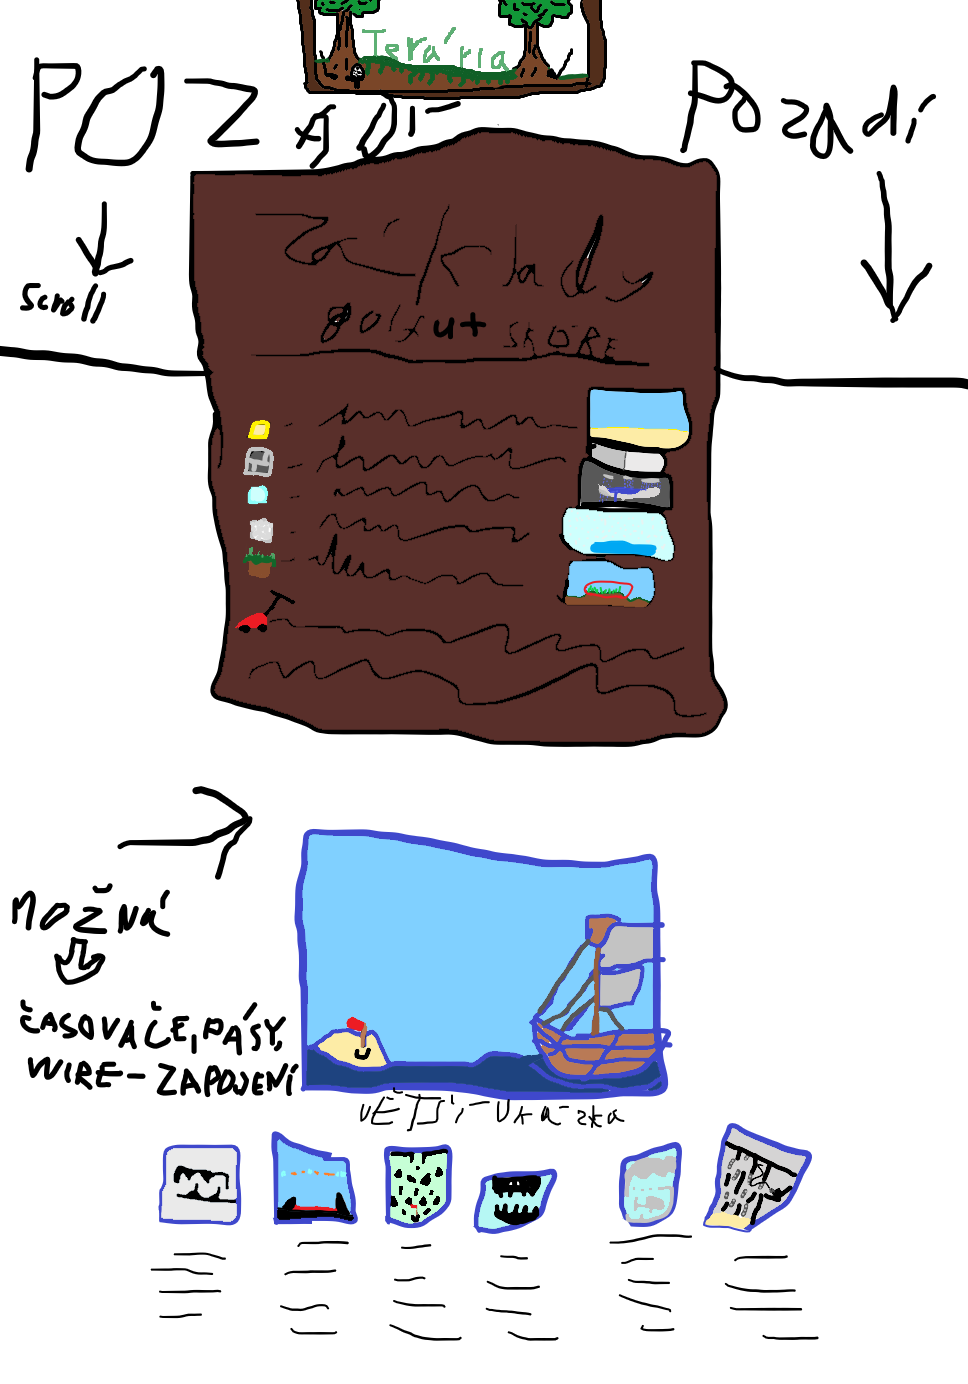 Terária
POZADÍ
Pozadí
Scroll
Základy
golfu + SKÓRE
MOŽNÁ
ČASOVAČE, PÁSY,
WIRE-ZAPOJENÍ
VĚTŠÍ UKÁZKA